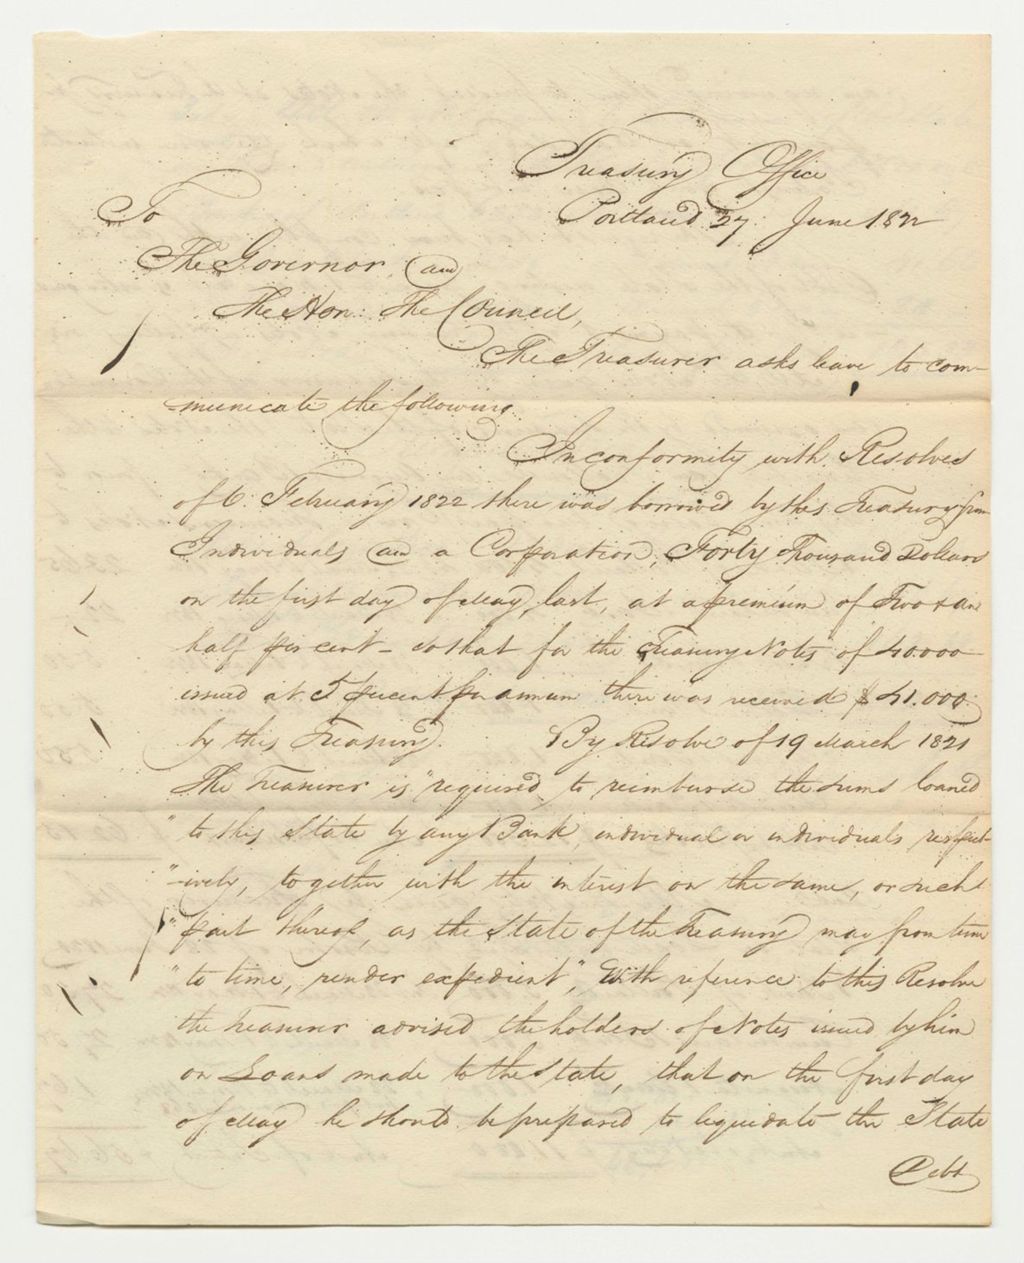 Treasury Office
Portland 27 June 1822
To
The Governor and
The Hon: The Council,
The Treasurer asks leave to com-
municate the following
In conformity with Resolves
of 6. February 1822 there was borrowed by this Treasury from
Individuals and a Corporation, Forty Thousand Dollars
on the first day of May last, at a premium of Two & an
half per cent - so that for the Treasury Notes of 40.000
issued at 5 pr cent per annum there was received $41.000.
by this Treasury. By Resolve of 19 March 1821
The Treasurer is "required to reimburse the sums loaned
" to this State by any Bank, individual or individuals respect-
" -ively, together with the interest on the same, or such
" part thereof, as the State of the Treasury may from time
" to time, render expedient", With reference to this Resolve
the Treasurer advised the holders of Notes issued by him
on Loans made to the State, that on the first day
of May he should be prepared to liquidate the State
Debt